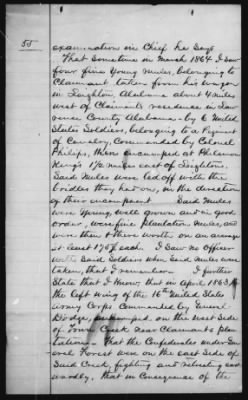 55
examination in Chief he says
That sometime in March 1864 I saw
four fine young mules, belonging to
Claimant taken from his wagon
in Leighton, Alabama about 4 miles
west of Claimants residence in Law
rence County Alabama - by 6 United
States Soldiers, belonging to a Regiment
of Cavalry, Commanded by Colonel
Philips, then encamped at
King's 1½ miles east of Leighton.
Said mules were led off with the
bridles they had on, in the direction
of their encampment Said Mules
were young, well grown and in good
order, were fine plantation mules, and
were then & there worth on an average
at least 175$ each. I saw no officer
with said Soldiers when said mules were
taken, that I remember. I further
State that I know, that in april 1863
the left wing of the 16th United States
Army Corps Commanded by General
Dodge, encamped, on the West Side
of Town Creek near Claimants plan
tation - That the Confederates under Gen
eral Forrest were on the east side of
Said Creek, fighting and retreating east
wardly, that in Consequence of the